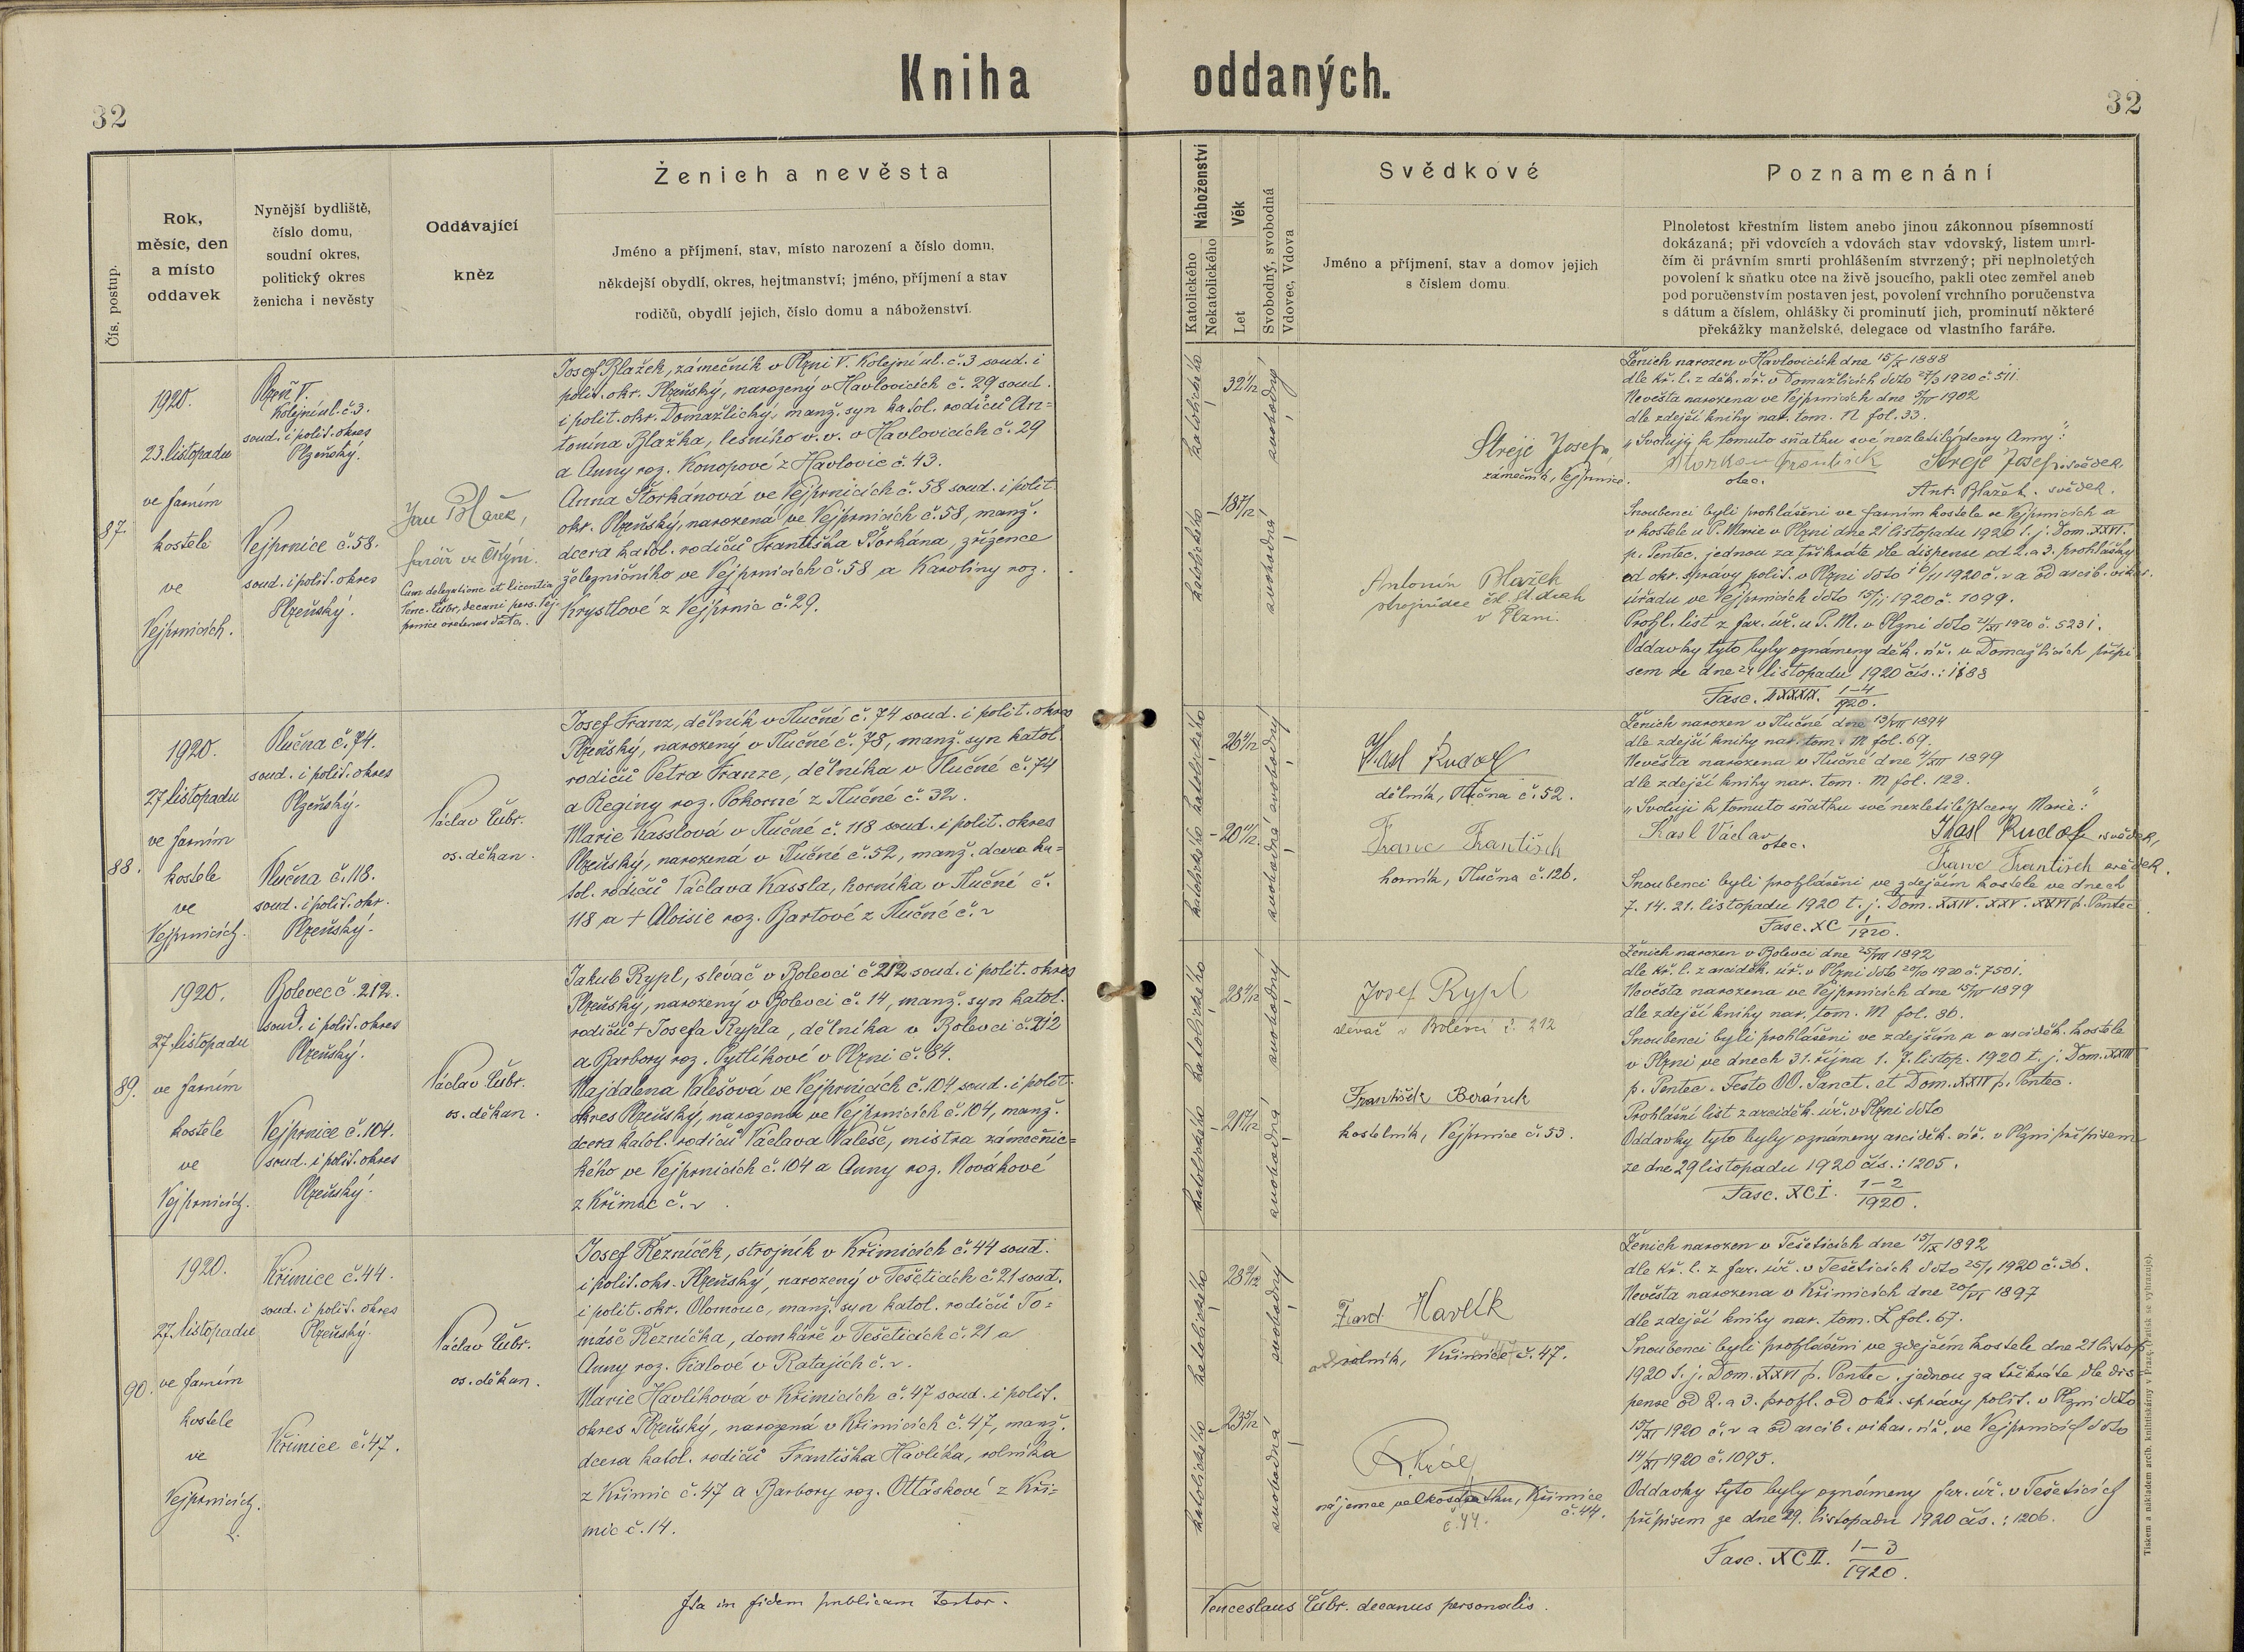 Kniha oddaných.
32
32
Čís. postup.
Rok,
měsíc, den
a místo
oddavek
Nynější bydliště,
číslo domu,
soudní okres,
politický okres
ženicha i nevěsty
Oddávající
kněz
Ženich a nevěsta
Jméno a příjmení, stav, místo narození a číslo domu,
někdejší obydlí, okres, hejtmanství; jméno, příjmení a stav
rodičů, obydlí jejich, číslo domu a náboženství.
Náboženství
Katolického
Nekatolického
Věk
Let
Svobodný, svobodná
Vdovec, Vdova
Svědkové
Jméno a příjmení, stav a domov jejich
s číslem domu.
Poznamenání
Plnoletost křestním listem anebo jinou zákonnou písemností
dokázaná; při vdovcích a vdovách stav vdovský, listem umrl-
čím či právním smrti prohlášením stvrzený; při neplnoletých
povolení k sňatku otce na živě jsoucího, pakli otec zemřel aneb
pod poručenstvím postaven jest, povolení vrchního poručenstva
s dátum a číslem, ohlášky či prominutí jich, prominutí některé
překážky manželské, delegace od vlastního faráře.
87.
1920.
23. listopadu
ve farním
kostele
ve
Vejprnicích.
Plzeň V.
Kolejní ul. č. 3.
soud. i polit. okres
Plzeňský.
Vejprnice č. 58.
soud. i polit. okres
Plzeňský.
farář ve
Cum delegatione et licentia
Josef Blažek, zámečník v Plzni V. Kolejní ul. č. 3 soud. i
polit. okr. Plzeňský, narozený v Havlovicích č. 29 soud.
i polit. okr. Domažlický, manž. syn katol. rodičů An-
tonína Blažka, lesního v. v. v Havlovicích č. 29
a Anny roz. Konopové z Havlovic č. 43.
Anna Štorkánová ve Vejprnicích č. 58 soud. i polit.
okr. Plzeňský, narozená ve Vejprnicích č. 58, manž.
dcera katol. rodičů Františka Štorkána, zřízence
železničního ve Vejprnicích č. 58 a Karolíny roz.
Krystlové z Vejprnic č. 29.
katolického
svobodný
katolického
svobodná
Streje Josef,
zámečník, Vejprnice.
Antonín Blažek
strojvůdce čsl. st. drah
v Plzni.
Ženich narozen v Havlovicích dne 15/X 1888
dle kř. l. z děk. úř. v Domažlicích ddto 27/3 1920 č. 511.
Nevěsta narozena ve Vejprnicích dne 1902
dle zdejší knihy nar. tom. N fol. 33.
„Svoluji k tomuto sňatku své nezletilé dcery Anny":
otec.
Streje Josef svědek.
Ant. Blažek. svědek.
Snoubenci byli prohlášeni ve farním kostele ve Vejprnicích a
v kostele u P. Marie v Plzni dne 21 listopadu 1920 t. j. Dom. XXVI.
p. Pentec. jednou za třikráte dle dispense od 2. a 3. prohlášky
od okr. správy polit. v Plzni ddto 16/11 1920 č. v a od arcib. vikar.
úřadu ve Vejprnicích ddto 15/11 1920 č. 1099.
Prohl. list z far. úř. u P. M. v Plzni ddto 21/XI 1920 č. 5231.
Oddavky tyto byly oznámeny děk. úř. v Domažlicích přípi-
sem ze dne 24 listopadu 1920 čís.: 1188
Fasc. LXXXIX. 1-4/1920.
88.
1920.
27. listopadu
ve farním
kostele
ve
Vejprnicích.
Tlučna č. 74.
soud. i polit. okres
Plzeňský.
Tlučna č. 118.
soud. i polit. okr.
Plzeňský.
Václav Čubr.
os. děkan.
Josef Franz, dělník v Tlučné č. 74 soud. i polit. okres
Plzeňský, narozený v Tlučné č. 78, manž. syn katol.
rodičů Petra Franze, dělníka v Tlučné č. 74
a Reginy roz. Pokorné z Tlučné č. 32.
Marie Kasslová v Tlučné č. 118 soud. i polit. okres
Plzeňský, narozená v Tlučné č. 52, manž. dcera ka-
tol. rodičů Václava Kassla, horníka v Tlučné č.
118 a † Aloisie roz. Bartové z Tlučné č. v
katolického
svobodný
katolického
svobodná
Kasl Rudolf
dělník, Tlučna č. 52.
Franc František
horník, Tlučna č. 126.
Ženich narozen v Tlučné dne 13/VII 1894
dle zdejší knihy nar. tom. M fol. 69.
Nevěsta narozena v Tlučné dne 4/XII 1899
dle zdejší knihy nar. tom. M fol. 122.
„Svoluji k tomuto sňatku své nezletilé dcery Marie:"
Kasl Václav otec.
Kasl Rudolf svědek,
Franc František svědek.
Snoubenci byli prohlášeni ve zdejším kostele ve dnech
7. 14. 21. listopadu 1920 t. j. Dom. XXIV. XXV. XXVI p. Pentec
Fasc. XC 1/1920.
89.
1920.
27. listopadu
ve farním
kostele
ve
Vejprnicích.
Bolevec č. 212.
soud. i polit. okres
Plzeňský.
Vejprnice č. 104.
soud. i polit. okres
Plzeňský.
Václav Čubr.
os. děkan.
Jakub Rypl, slévač v Bolevci č. 212 soud. i polit. okres
Plzeňský, narozený v Bolevci č. 14, manž. syn katol.
rodičů † Josefa Rypla, dělníka v Bolevci č. 212
a Barbory roz. Pytlíkové v Plzni č. 84.
Majdalena Valešová ve Vejprnicích č. 104 soud. i polit.
okres Plzeňský, narozena ve Vejprnicích č. 104, manž.
dcera katol. rodičů Václava Valeše, mistra zámečnic-
kého ve Vejprnicích č. 104 a Anny roz. Nováhové
z Křimic č. v
katolického
svobodný
katolického
svobodná
Josef Rypl
slévač v Bolevci č. 212
František Beránek
kostelník, Vejprnice č. 53.
Ženich narozen v Bolevci dne 25/VII 1892
dle kř. l. z arciděk. úř. v Plzni ddto 20/10 1920 č. 7501.
Nevěsta narozena ve Vejprnicích dne 15/IV 1899
dle zdejší knihy nar. tom. M fol. 86.
Snoubenci byli prohlášeni ve zdejším a v arciděk. kostele
v Plzni ve dnech 31. října 1. 7. listop. 1920 t. j. Dom. XXIII
p. Pentec. Festo OO. Sanct. et Dom. XXIV p. Pentec.
Prohlášní list z arciděk. úř. v Plzni ddto
Oddavky tyto byly oznámeny arciděk. úř. v Plzni přípisem
ze dne 29 listopadu 1920 čís.: 1205.
Fasc. XCI. 1-2/1920.
90.
1920.
27. listopadu
ve farním
kostele
ve
Vejprnicích.
Křimice č. 44.
soud. i polit. okres
Plzeňský.
Křimice č. 47.
Václav Čubr.
os. děkan.
Josef Řezníček, strojník v Křimicích č. 44 soud.
i polit. okr. Plzeňský, narozený v Těšeticích č. 21 soud.
i polit. okr. Olomouc, manž. syn katol. rodičů To-
máše Řezníčka, domkáře v Těšeticích č. 21 a
Anny roz. Fialové v Ratajích č. v.
Marie Havlíková v Křimicích č. 47 soud. i polit.
okres Plzeňský, narozená v Křimicích č. 47, manž.
dcera katol. rodičů Františka Havlíka, rolníka
z Křimic č. 47 a Barbory roz. Ottáskové z Kři-
mic č. 14.
katolického
svobodný
katolického
svobodná
Havlík
rolník, Křimice č. 47.
Král
nájemce velkostatku, Křimice
č. 44.
č. 44.
Ženich narozen v Těšeticích dne 15/IX 1892
dle kř. l. z far. úř. v Těšeticích ddto 1920 č. 36.
Nevěsta narozena v Křimicích dne 20/VI 1897
dle zdejší knihy nar. tom. L fol. 67.
Snoubenci byli prohlášeni ve zdejším kostele dne 21 listop.
1920 t. j. Dom. XXVI p. Pentec. jednou za třikráte dle dis-
pense od 2. a 3. prohl. od okr. správy polit. v Plzni ddto
15/XI 1920 č. v a od arcib. vikar. úř. ve Vejprnicích ddto
14/XI 1920 č. 1095.
Oddavky tyto byly oznámeny far. úř. v Těšeticích
přípisem ze dne 29. listopadu 1920 čís.: 1206.
Fasc. XCII. 1-3/1920.
Ita in fidem publicam testor.
Venceslaus Čubr. decanus personalis.
Tiskem a nákladem arcib. knihtiskárny v Praze. (Patisk se vyhrazuje).